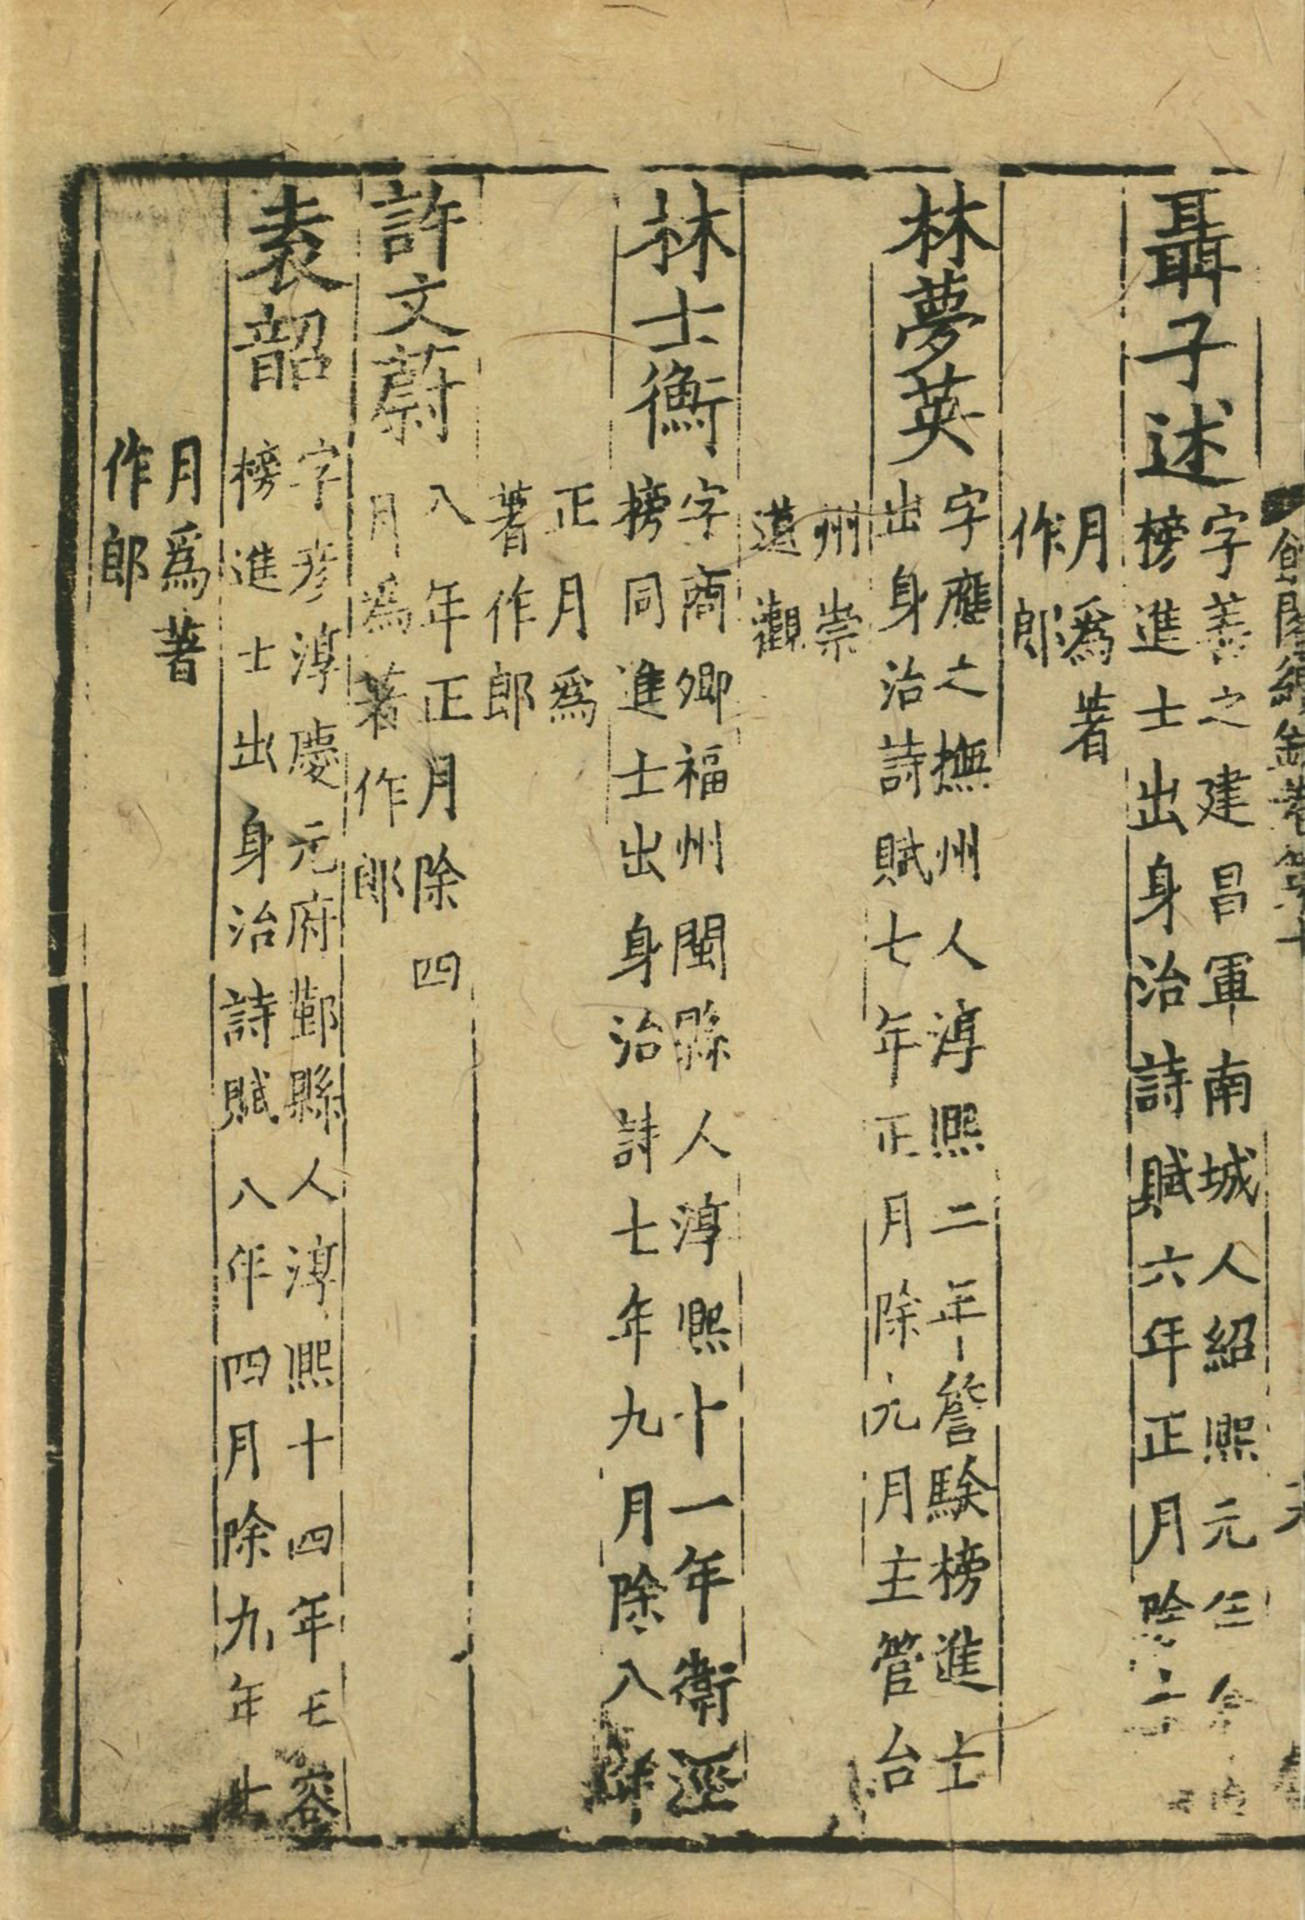 館閣續錄卷第十
聶子述
字善之建昌軍南城人紹熙元年余
榜進士出身治詩賦六年正月除
月爲著
作郎
林夢英
字應之撫州人淳熙二年詹騤榜進士
出身治詩賦七年正月除元月主管台
州崇
道觀
林士衡
字商卿福州閩縣人淳熙十一年衛涇
榜同進士出身治詩七年九月除八年
正月爲
著作郎
許文蔚
八年正月除四
月爲著作郎
袁韶
字彦淳慶元府鄞縣人淳熙十四年王容
榜進士出身治詩賦八年四月除九年七
月爲著
作郎